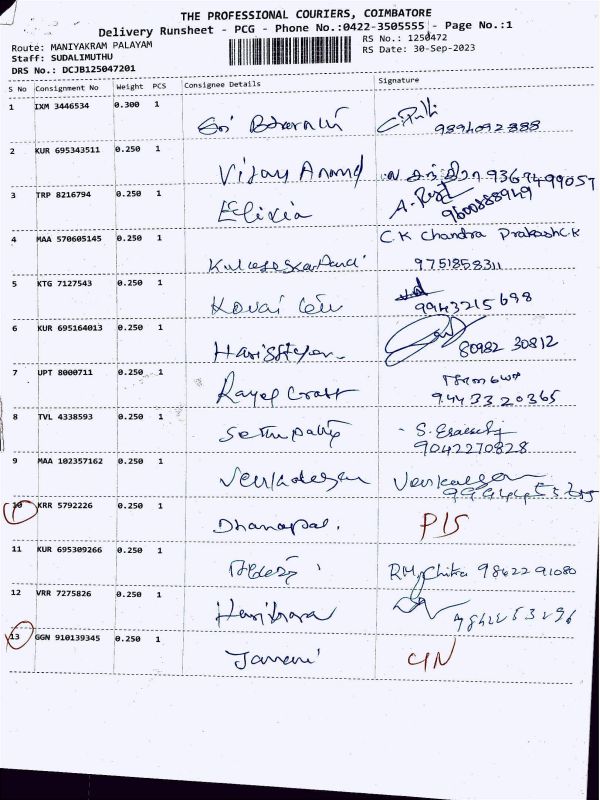 THE PROFESSIONAL COURIERS, COIMBATORE
Delivery Runsheet - PCG - Phone No.:0422-3505555 - Page No.:1
Route: MANIYAKRAM PALAYAM
RS No.: 1250472
Staff: SUDALIMUTHU
RS Date: 30-Sep-2023
DRS No.: DCJB125047201
S No Consignment No Weight PCS Consignee Details Signature
1 IXM 3446534 0.300 1
9894092888
2 KUR 695343511 0.250 1 Vijay Anand 9367499057
3 TRP 8216794 0.250 1 Elixia A.
9600888949
4 MAA 570605145 0.250 1 C.K Chandra Prakash C.K
9751858311
5 KTG 7127543 0.250 1 Kovai
9943215698
6 KUR 695164013 0.250 1 80982 30812
7 UPT 8000711 0.250 1
9443320365
8 TVL 4338593 0.250 1 Sethupathy S.
9042270828
9 MAA 102357162 0.250 1 Venkadesan
10 KRR 5792226 0.250 1 Dhanapal. P/S
11 KUR 695309266 0.250 1 RM. Chitra 98622 91080
12 VRR 7275826 0.250 1
13 GGN 910139345 0.250 1 Janani